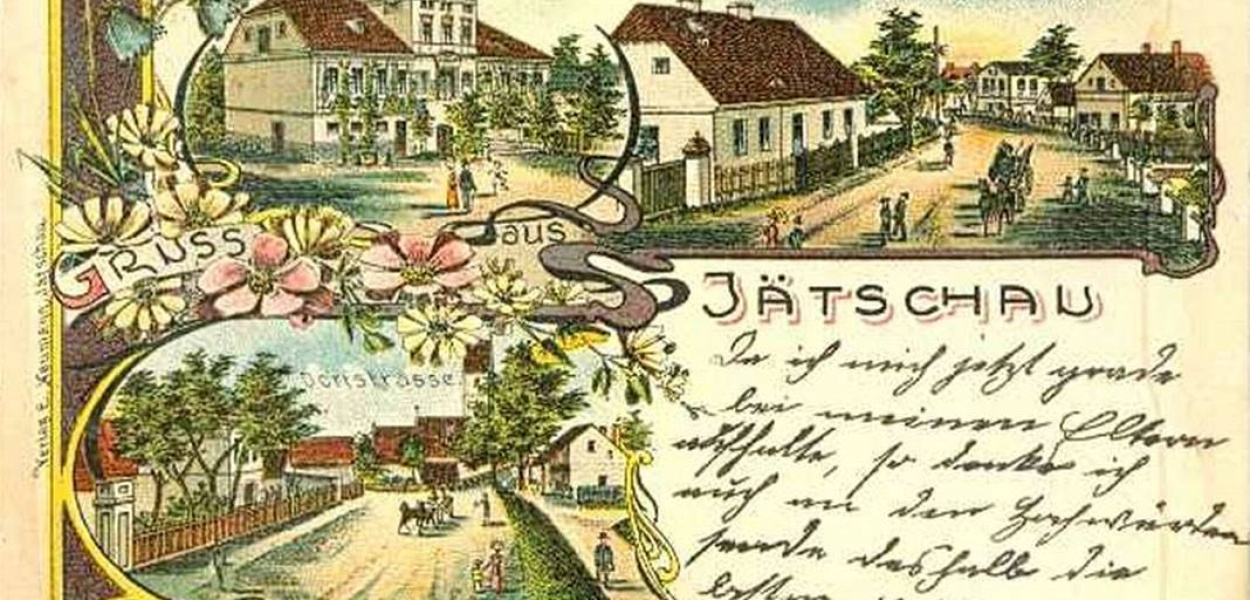 GRUSS aus
JÄTSCHAU
Dorfstrasse.
Da ich mich jetzt grade
bei meinen Eltern
aufhalte, so denke ich
auch an den Hochwürden
sende deshalb die
besten
Verlag E. Naumann, Jätschau.